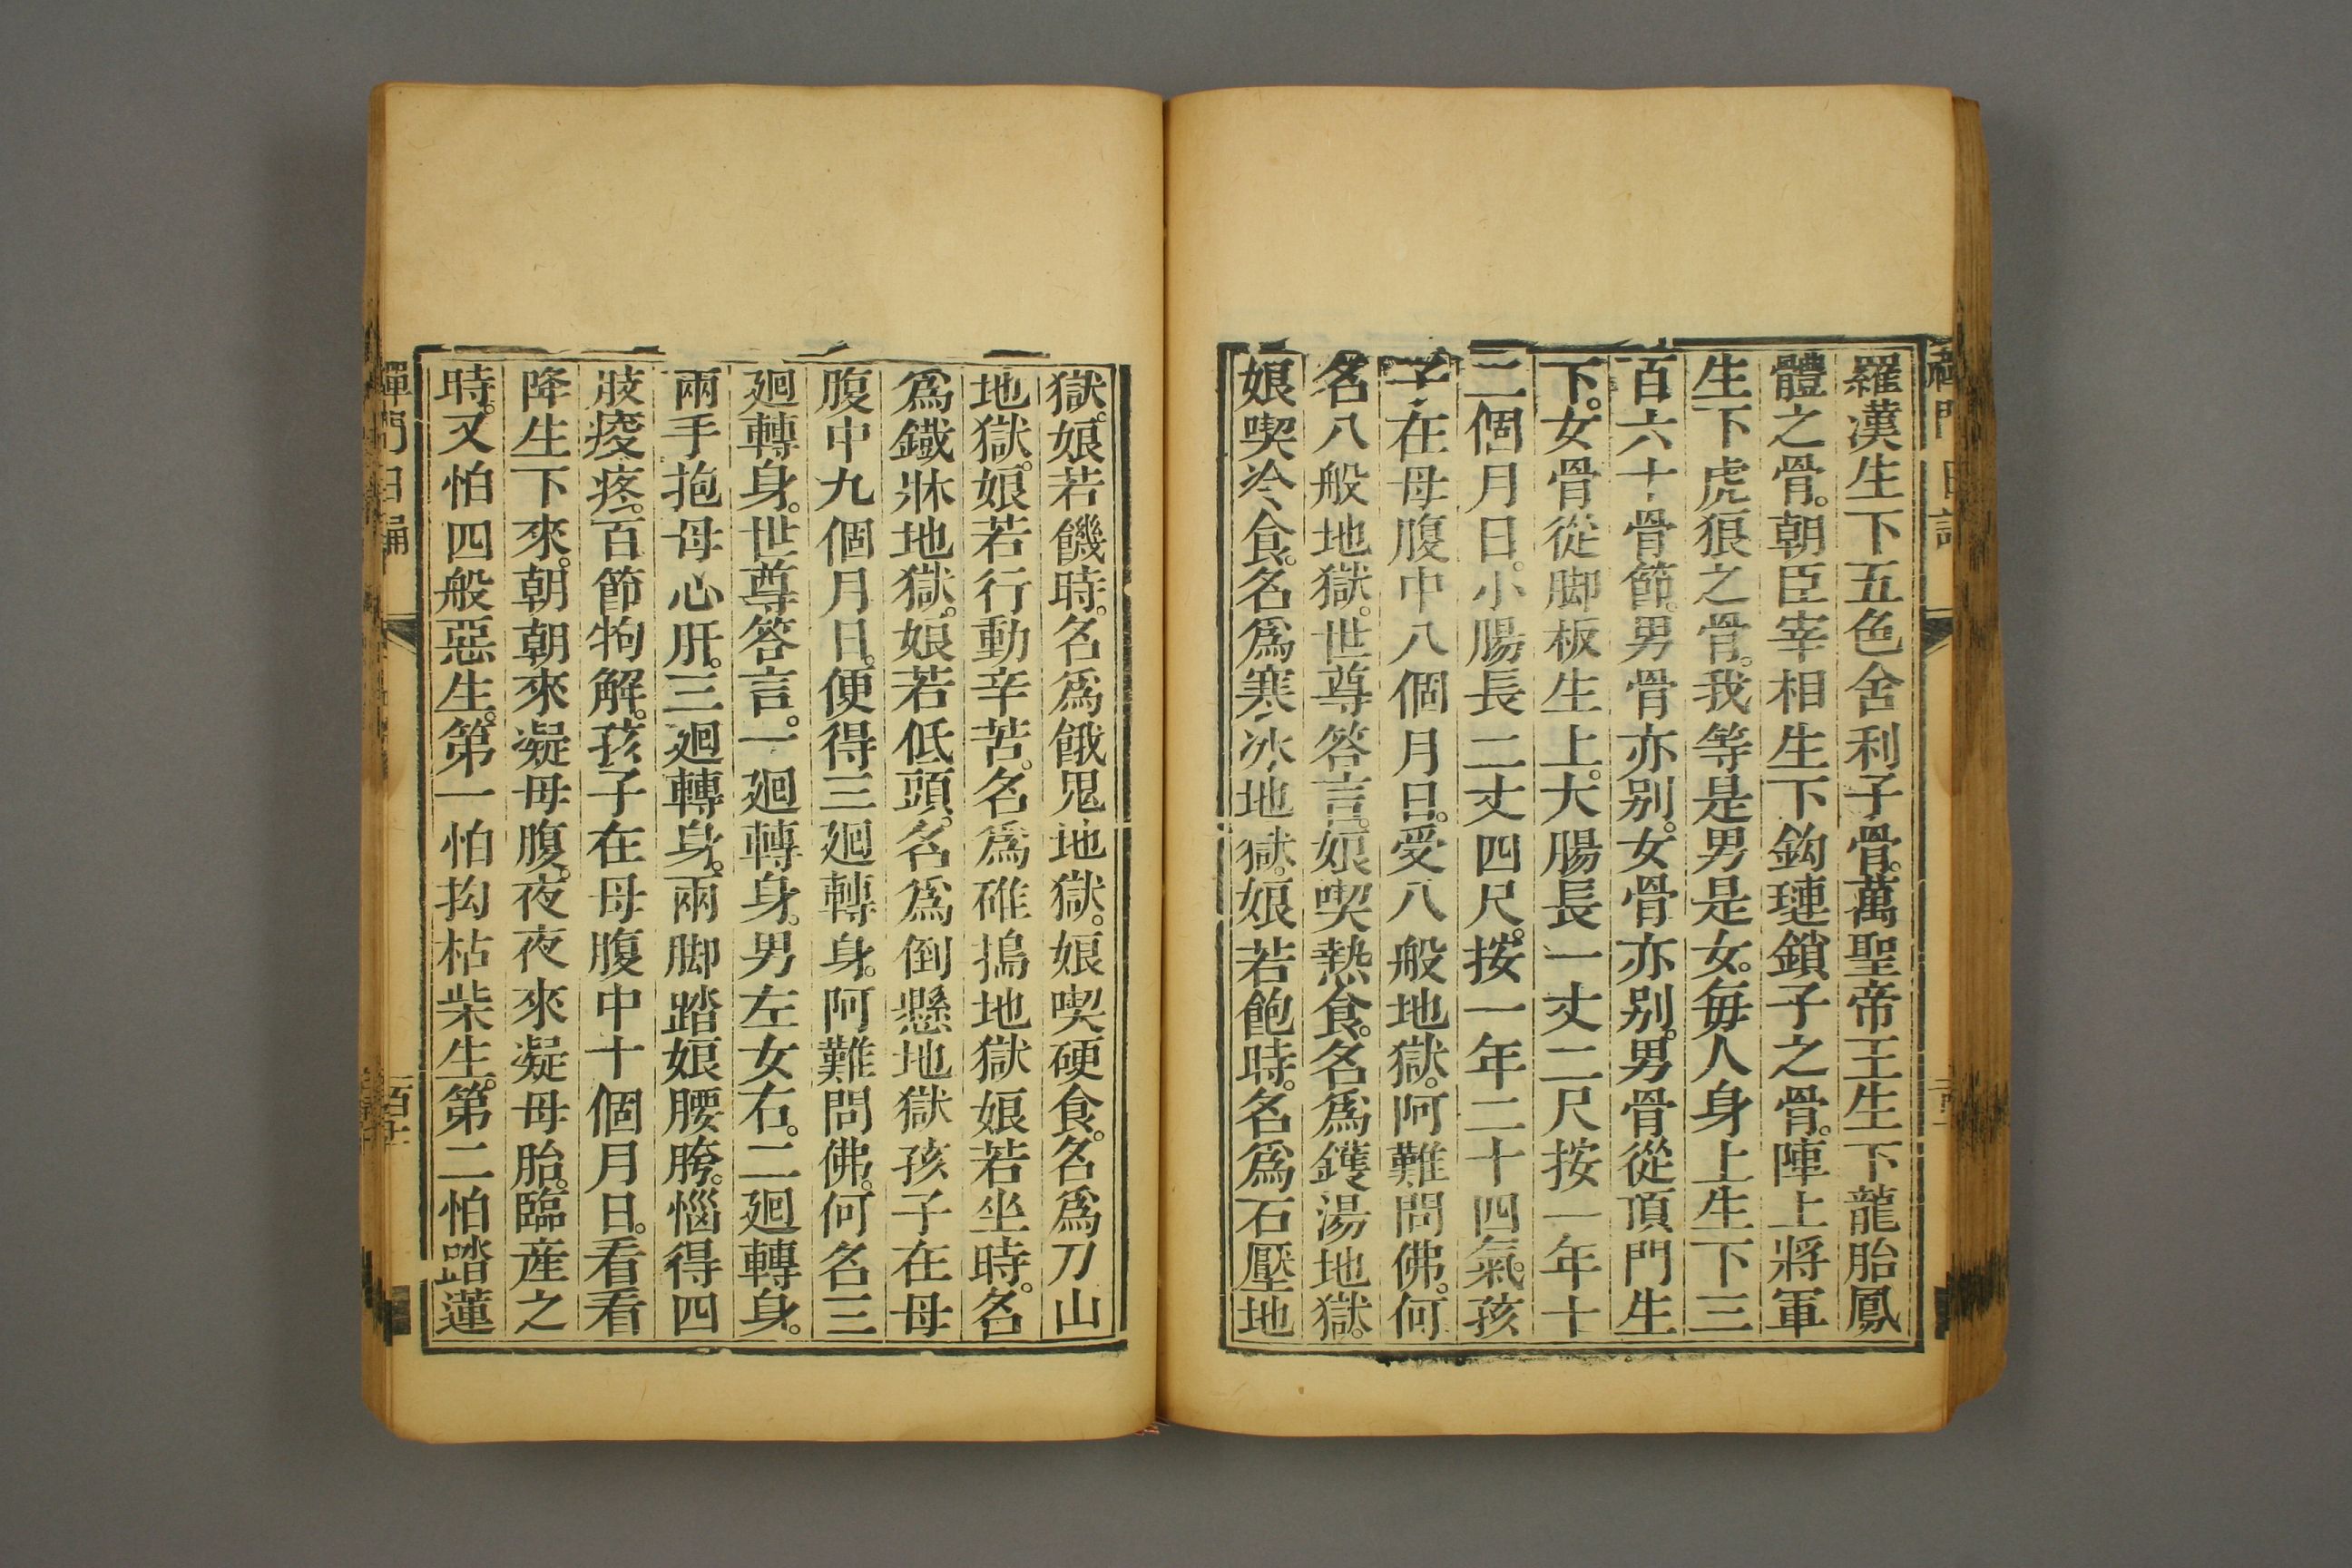 羅漢生下五色舍利子骨。萬聖帝王生下龍胎鳳
體之骨。朝臣宰相生下鈎璉鎖子之骨。陣上將軍
生下虎狼之骨。我等是男是女。每人身上生下三
百六十骨節。男骨亦别。女骨亦别。男骨從頂門生
下。女骨從脚板生上。大腸長一丈二尺按一年十
二個月日。小腸長二丈四尺。按一年二十四氣。孩
子在母腹中八個月日。受八般地獄。阿難問佛。何
名八般地獄。世尊答言。娘喫熱食。名爲鑊湯地獄。
娘喫冷食。名爲寒氷地獄。娘若飽時。名爲石壓地
獄。娘若饑時。名爲餓鬼地獄。娘喫硬食。名爲刀山
地獄。娘若行動辛苦。名爲碓搗地獄娘若坐時。名
爲鐵牀地獄。娘若低頭。名爲倒懸地獄孩子在母
腹中九個月日。便得三廻轉身。阿難問佛。何名三
廻轉身。世尊答言。一廻轉身。男左女右。二廻轉身。
兩手抱母心肝。三廻轉身。兩脚踏娘腰胯。惱得四
肢痠疼。百節拘解。孩子在母腹中十個月日。看看
降生下來。朝朝來凝母腹。夜夜來凝母胎。臨產之
時。又怕四般惡生。第一怕拘枯柴生。第二怕踏蓮
禪門日誦